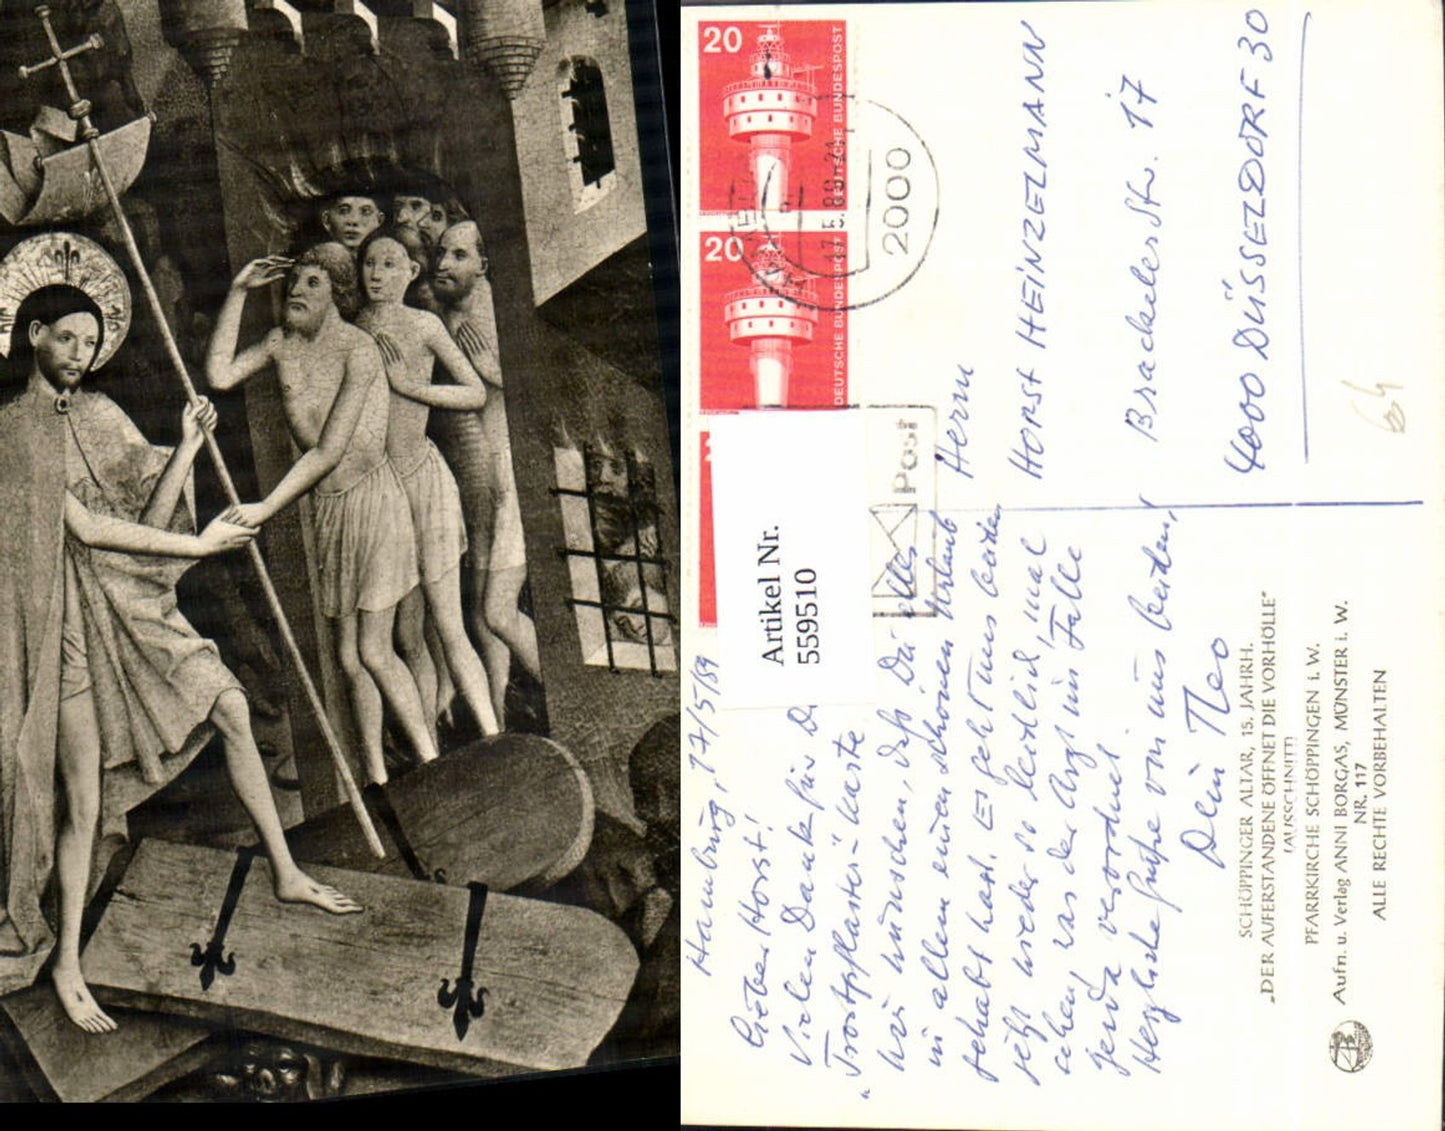 20
DEUTSCHE BUNDESPOST
20
DEUTSCHE BUNDESPOST
17.5.89-21
2000
Post
Artikel Nr.
559510
Hamburg, 17/5/89
Lieber Horst!
Vielen Dank für D
"Trostpflaster"-Karte
wir wünschen, daß Du alles
in allem einen schönen Urlaub
gehabt hast. Es geht uns beiden
jetzt wieder so leidlich, mal
sehen, was der Arzt im Falle
Gerda verordnet.
Herzliche Grüße von uns beiden,
Dein Theo
Herrn
HORST HEINZELMANN
Brackeler Str. 17
4000 DÜSSELDORF 30
64
SCHÖPPINGER ALTAR, 15. JAHRH.
„DER AUFERSTANDENE ÖFFNET DIE VORHÖLLE"
(AUSSCHNITT)
PFARRKIRCHE SCHÖPPINGEN i. W.
Aufn. u. Verlag ANNI BORGAS, MÜNSTER i. W.
NR. 117
ALLE RECHTE VORBEHALTEN